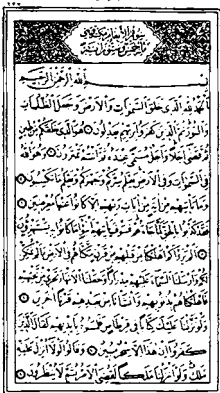 سورة الانعام مكية وهي
مائة وخمس وستون آية
بسم الله الرحمن الرحيم
الحمد لله الذي خلق السموات والارض وجعل الظلمات
والنور ثم الذين كفروا بربهم يعدلون هو الذي خلقكم من طين
ثم قضى اجلا واجل مسمى عنده ثم انتم تمترون وهو الله
في السموات وفي الارض يعلم سركم وجهركم ويعلم ما تكسبون
وما تأتيهم من اية من ايات ربهم الا كانوا عنها معرضين
فقد كذبوا بالحق لما جاءهم فسوف يأتيهم انبؤا ما كانوا به يستهزؤن
الم يروا كم اهلكنا من قبلهم من قرن مكناهم في الارض ما لم نمكن
لكم وارسلنا السماء عليهم مدرارا وجعلنا الانهار تجري من تحتهم
فاهلكناهم بذنوبهم وانشأنا من بعدهم قرنا اخرين
ولو نزلنا عليك كتابا في قرطاس فلمسوه بايديهم لقال الذين
كفروا ان هذا الا سحر مبين وقالوا لولا انزل عليه
ملك ولو انزلنا ملكا لقضي الامر ثم لا ينظرون